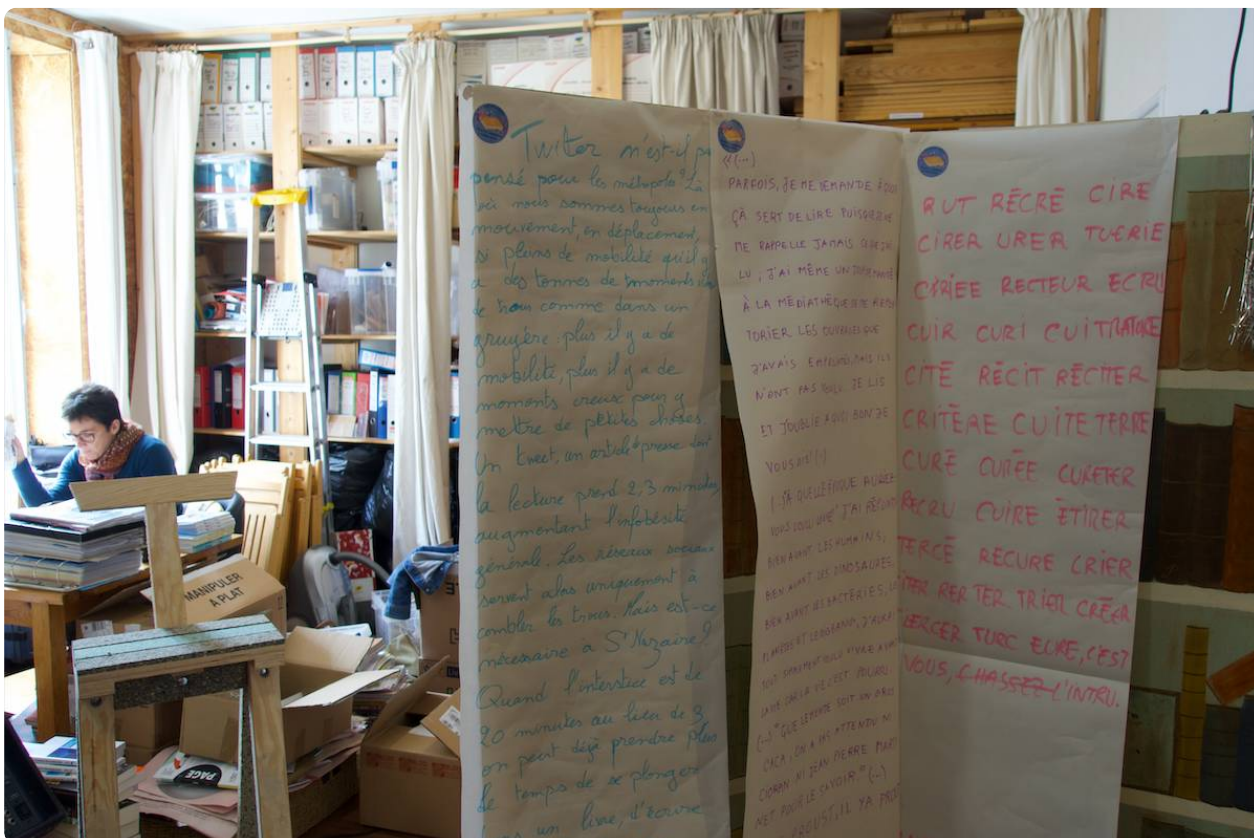 Twitter n'est-il pa
pensé pour les métropoles? Là
où nous sommes toujours en
mouvement, en déplacement,
si pleins de mobilité qu'il y
a des tonnes de moments
de trous comme dans un
gruyère: plus il y a de
mobilité, plus il y a de
moments creux pour y
mettre de petites choses.
Un tweet, un article presse dont
la lecture prend 2,3 minutes
augmentant l'infobésité
générale. Les réseaux sociaux
servent alors uniquement à
combler les trous. Mais est-ce
nécessaire à St Nazaire?
Quand l'interstice est de
20 minutes au lieu de 3,
on peut déjà prendre plus
de temps de se plonger
un livre, d'écrire
«(...)
PARFOIS, JE ME DEMANDE À QUOI
ÇÀ SERT DE LIRE PUISQUE JE
ME RAPPELLE JAMAIS CE QUE J'AI
LU, J'AI MÊME UN JOUR DEMANDÉ
À LA MÉDIATHÈQUE DE RÉPER
TORIER LES OUVRAGES QUE
J'AVAIS EMPRUNTÉ, MAIS ILS
N'ONT PAS VOULU. JE LIS
ET J'OUBLIE À QUOI BON JE
VOUS DIT (..)
(..) À QUELLE ÉPOQUE AURIEZ
VOUS VOULU VIVRE? J'AI RÉPONDU
BIEN AVANT LES HUMAINS,
BIEN AVANT LES DINOSAURES,
BIEN AVANT LES BACTÉRIES,
VIVRE
LA VIE C'EST POURRI.
(..) "QUE LE MONDE SOIT UN GROS
CACA, ON A PAS ATTENDU NI
CIORAN NI JEAN PIERRE MARTI
NET POUR LE SAVOIR." (..)
IL Y A
RUT RÉCRÉ CIRE
CIRER URER TUERIE
CRIÉE RECTEUR ECRU
CUIR CURI CUIT
CITÉ RÉCIT RÉCITER
CRITÈRE CUITE TERRE
CURÉ CURÉE CURETER
RECRU CUIRE ÉTIRER
TERCÉ RECURE CRIER
RER TER TRIER CRÉER
BERCER TURC ECRE, C'EST
VOUS, CHASSEZ L'INTRU.
MANIPULER
A PLAT
PAGE